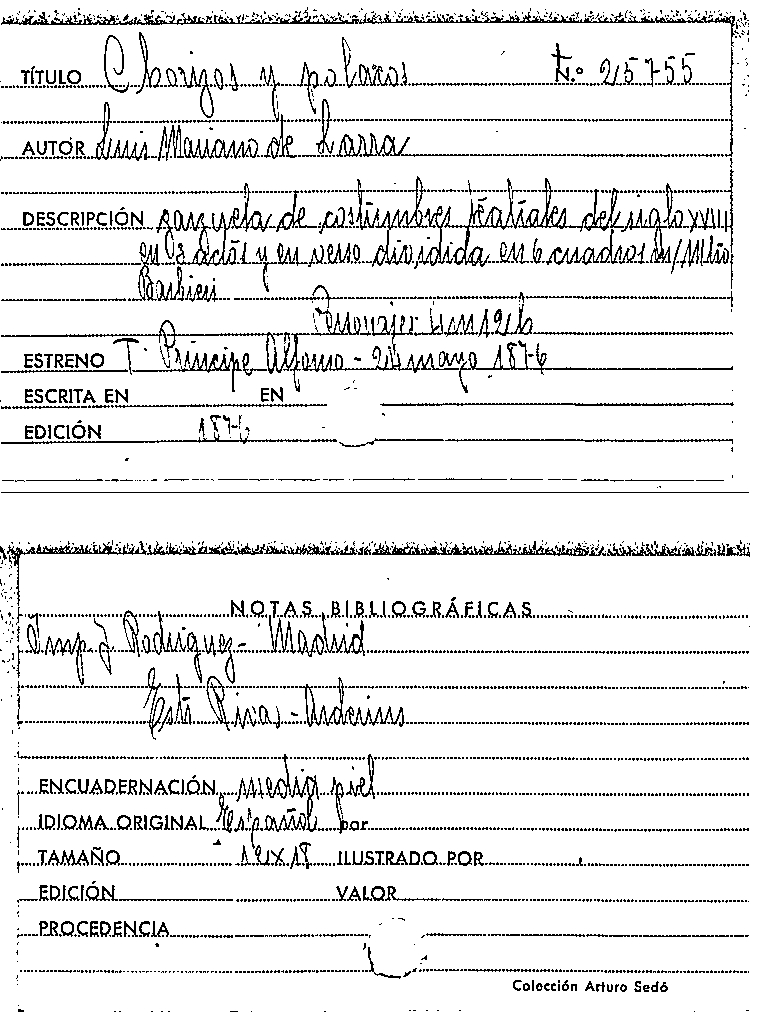 TÍTULO Chorizos y polacos N.º 25755
AUTOR Luis Mariano de Larra
DESCRIPCIÓN zarzuela de costumbres teatrales del siglo XVIII
en 3 actos y en verso dividida en 6 cuadros
Barbieri
Personajes
ESTRENO T. Principe Alfonso - 24 mayo 1876
ESCRITA EN EN
EDICIÓN 1876
NOTAS BIBLIOGRÁFICAS
Imp. J Rodriguez - Madrid
Rivas - Arderius
ENCUADERNACIÓN media piel
IDIOMA ORIGINAL Español por
TAMAÑO ILUSTRADO POR
EDICIÓN VALOR
PROCEDENCIA
Colección Arturo Sedó